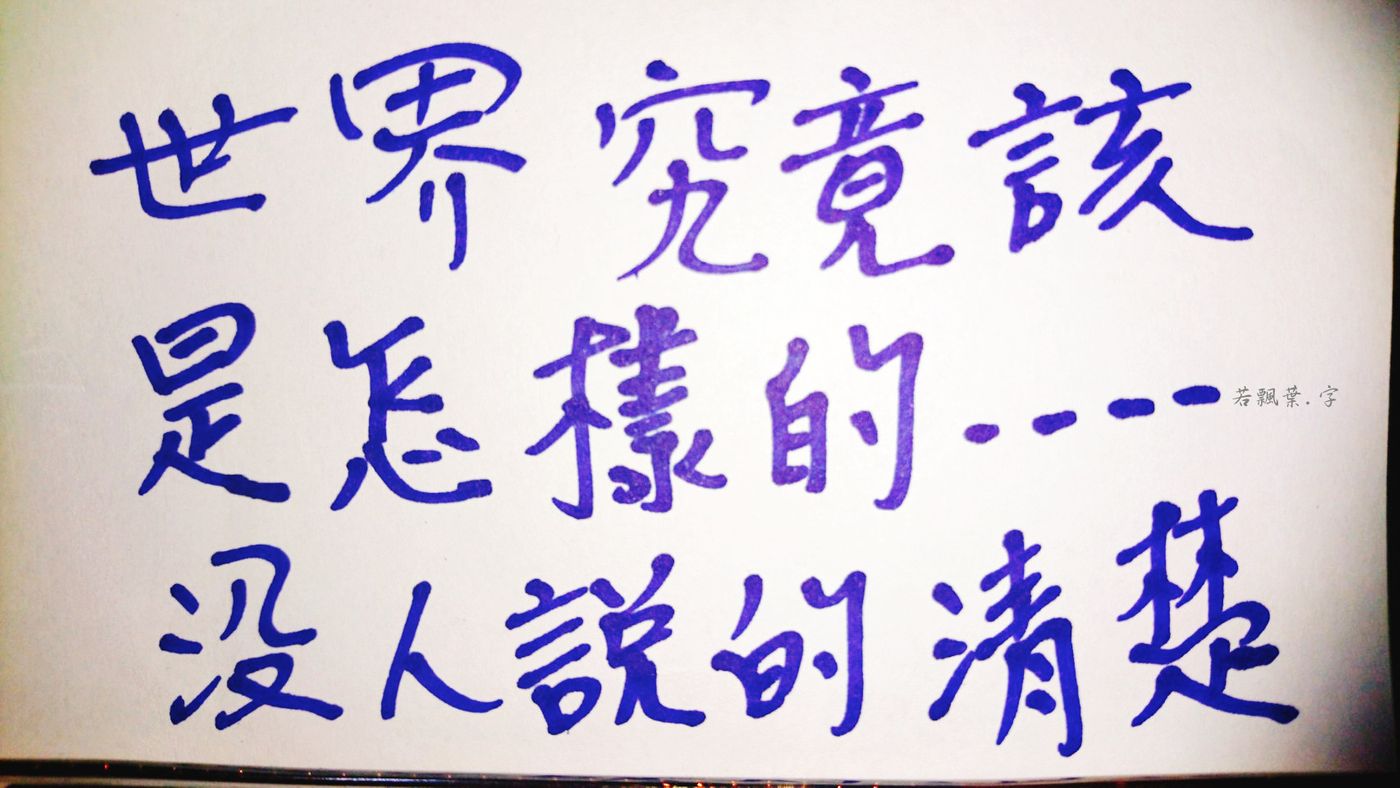 世界究竟該
是怎樣的----
若飄葉.字
没人說的清楚